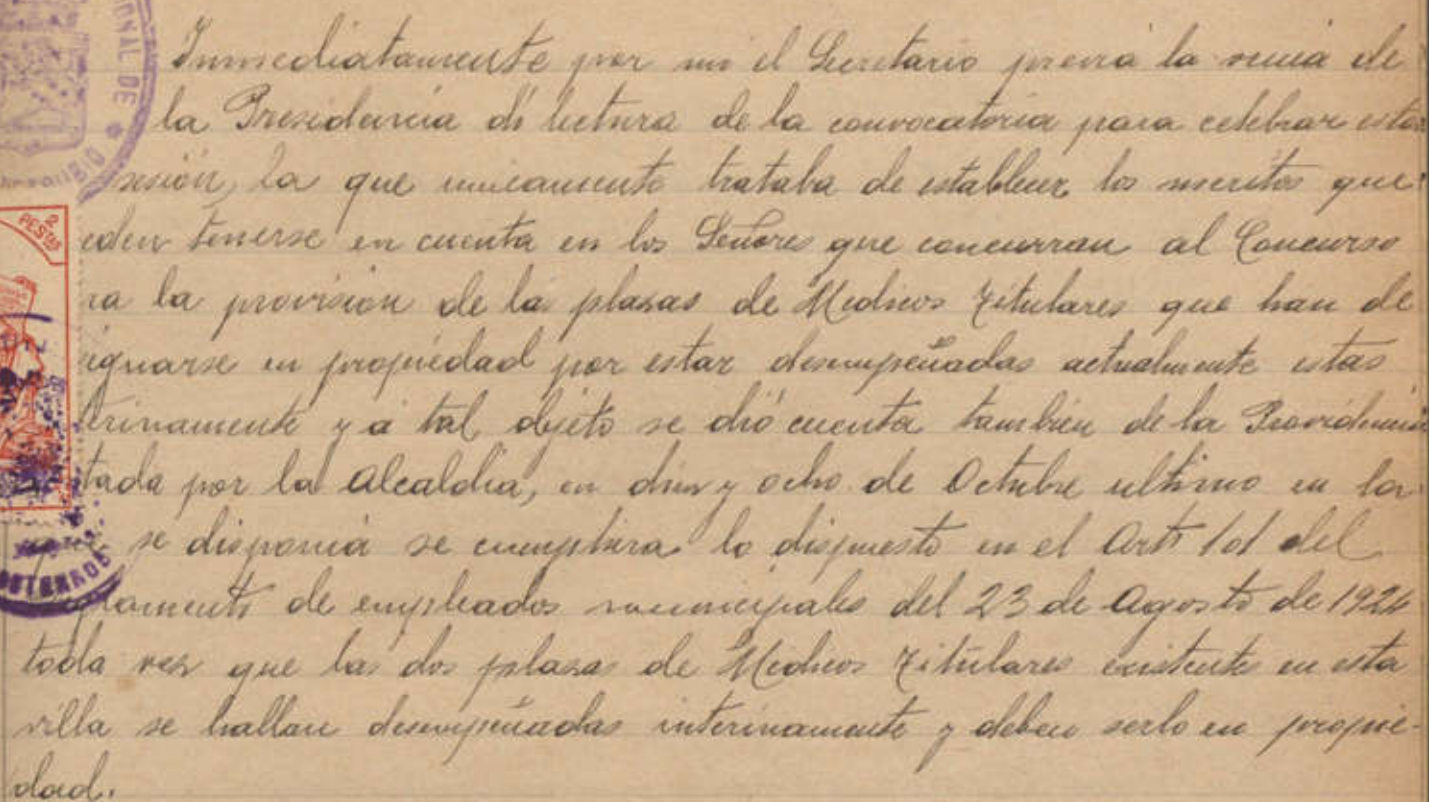 ONAL DE
Inmediatamente por mi el Secretario previa la venia de
la Presidencia dí lectura de la convocatoria para celebrar esta
sesión, la que unicamente trataba de establecer los meritos que
eden tenerse en cuenta en los Señores que concurran al Concurso
2 PESETAS
ra la provisión de las plasas de Medicos Titulares que han de
ignarse en propiedad por estar desempeñadas actualmente estas
terinamente y á tal objeto se dió cuenta tambien de la Providencia
tada por la Alcaldia, en diez y ocho de Octubre ultimo en la
se disponia se cumpliera lo dispuesto en el Artº 101 del
glamento de empleados municipales del 23 de Agosto de 1924
toda vez que las dos plasas de Medicos Titulares existentes en esta
villa se hallan desempeñadas interinamente y deben serlo en propie-
dad.